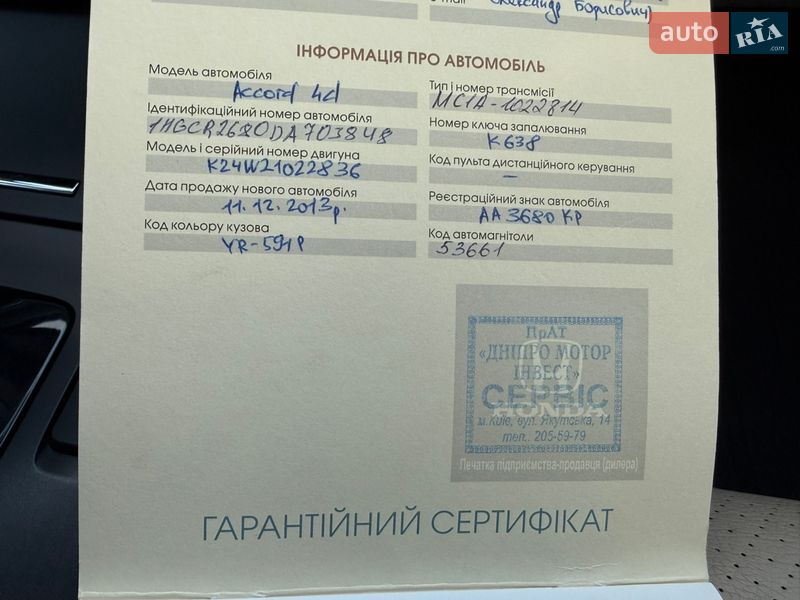 e-mail
Олександр Борисович)
auto RIA
.com
ІНФОРМАЦІЯ ПРО АВТОМОБІЛЬ
Модель автомобіля
Accord 4d
Тип і номер трансмісії
MC1A-1022814
Ідентифікаційний номер автомобіля
1HGCR2620DA703848
Номер ключа запалювання
K638
Модель і серійний номер двигуна
K24W21022836
Код пульта дистанційного керування
–
Дата продажу нового автомобіля
11.12.2013р.
Реєстраційний знак автомобіля
АА 3680 КР
Код кольору кузова
YR-591P
Код автомагнітоли
53661
ПрАТ
«ДНІПРО МОТОР
ІНВЕСТ»
СЕРВІС
HONDA
м.Київ, вул. Якутська, 14
тел.. 205-59-79
Печатка підприємства-продавця (дилера)
ГАРАНТІЙНИЙ СЕРТИФІКАТ